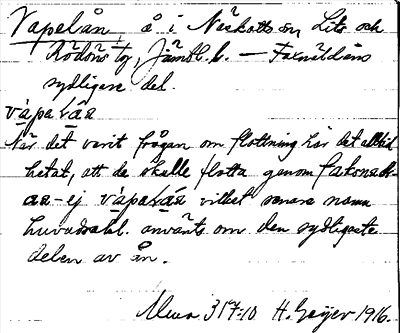 Vapelån, å i Näskotts sn, Lits och
Rödöns tg, Jämtl. l. — Faxnäldåns
sydligare del.
vàpaɫåa
När det varit frågan om flottning här det alltid
hetat, att de skulle flotta genom
åa - ej vàpaɫåa vilket senare namn
huvudsakl. använts om den sydligaste
delen av ån.
317:10 H. Geijer 1916.